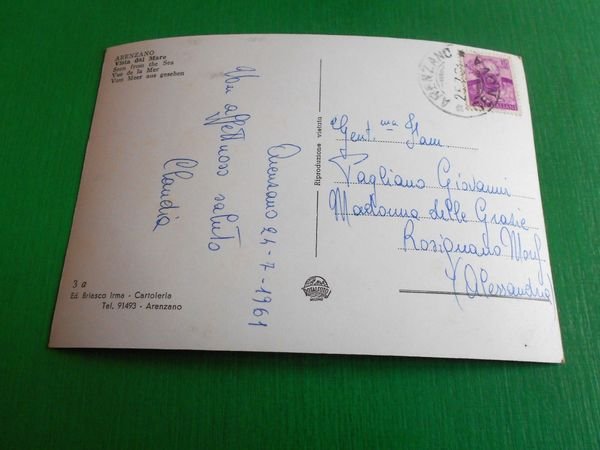 ARENZANO
Vista dal Mare
Seen from the Sea
Vue de la Mer
Vom Meer aus gesehen
Arenzano 24-7-1961
Un affettuoso saluto
Claudia
3 a
Ed. Briasco Irma - Cartoleria
Tel. 91493 - Arenzano
Riproduzione vietata
ARENZANO
Gent.ma Fam.
Vagliano Giovanni
Madonna delle Grazie
Rosignano Monf
(Alessandria)